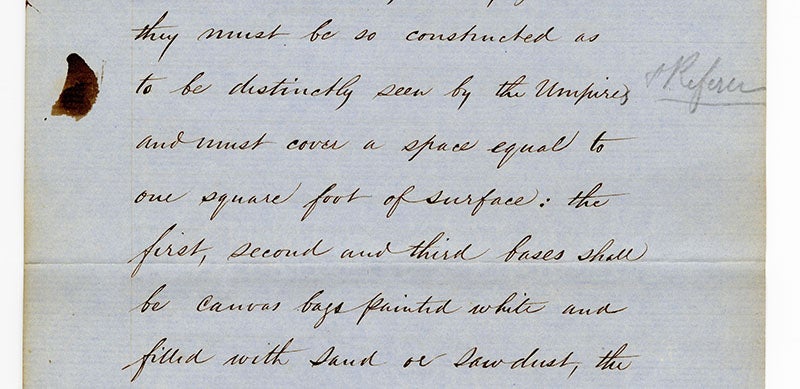 they must be so constructed as
to be distinctly seen by the Umpires & Referee
and must cover a space equal to
one square foot of surface: the
first, second and third bases shall
be canvas bags painted white and
filled with sand or sawdust, the